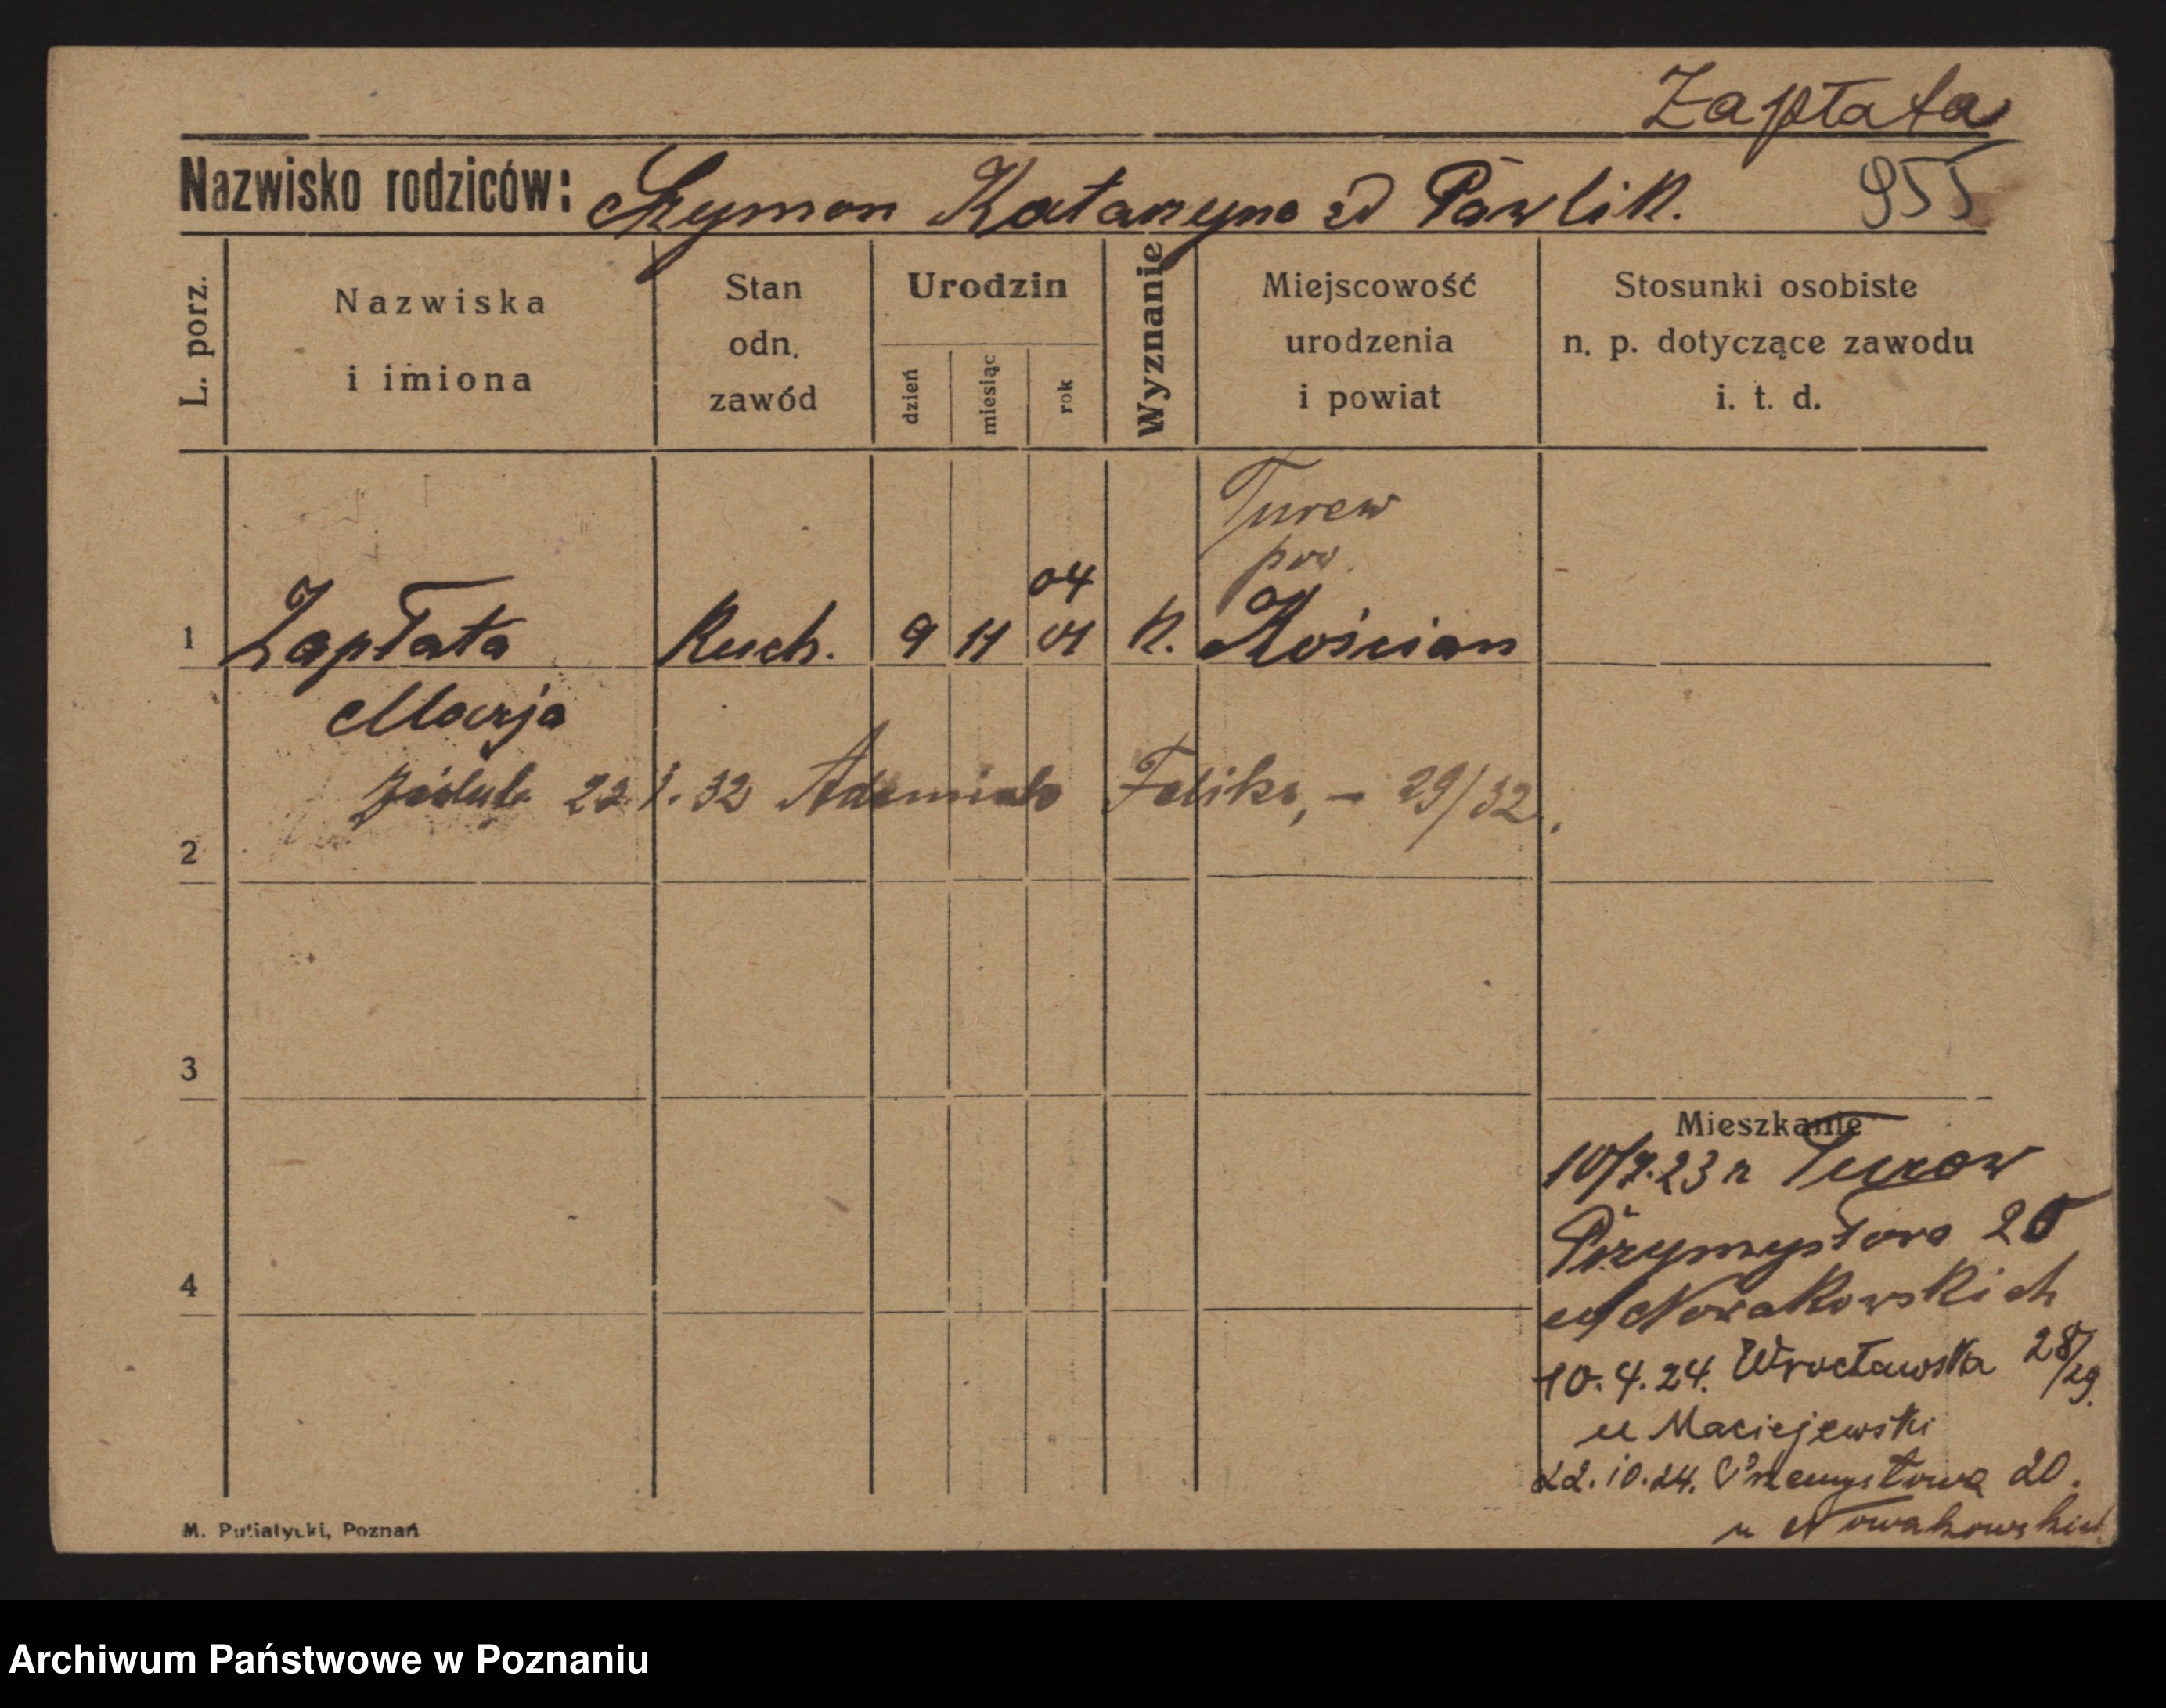 Zapłata
Nazwisko rodziców: Szymon Katarzyna zd Pawlik. 955
L. porz.
Nazwiska
i imiona
Stan
odn.
zawód
Urodzin
dzień
miesiąc
rok
Wyznanie
Miejscowość
urodzenia
i powiat
Stosunki osobiste
n. p. dotyczące zawodu
i. t. d.
Turew
pow.
04
1 Zapłata Kuch. 9 11 01 K. Kościan
Marja
22.1.32 Adamiak Feliks, – 29/32.
2
3
4
Mieszkanie
10/7.23 z Turew
Przymysłowa 20
u Nowakowskich
10.4.24. Wrocławska 28/29.
u Maciejewski
22.10.24. Przemysłowa 20.
u Nowakowskich
M. Putiatycki, Poznań
Archiwum Państwowe w Poznaniu